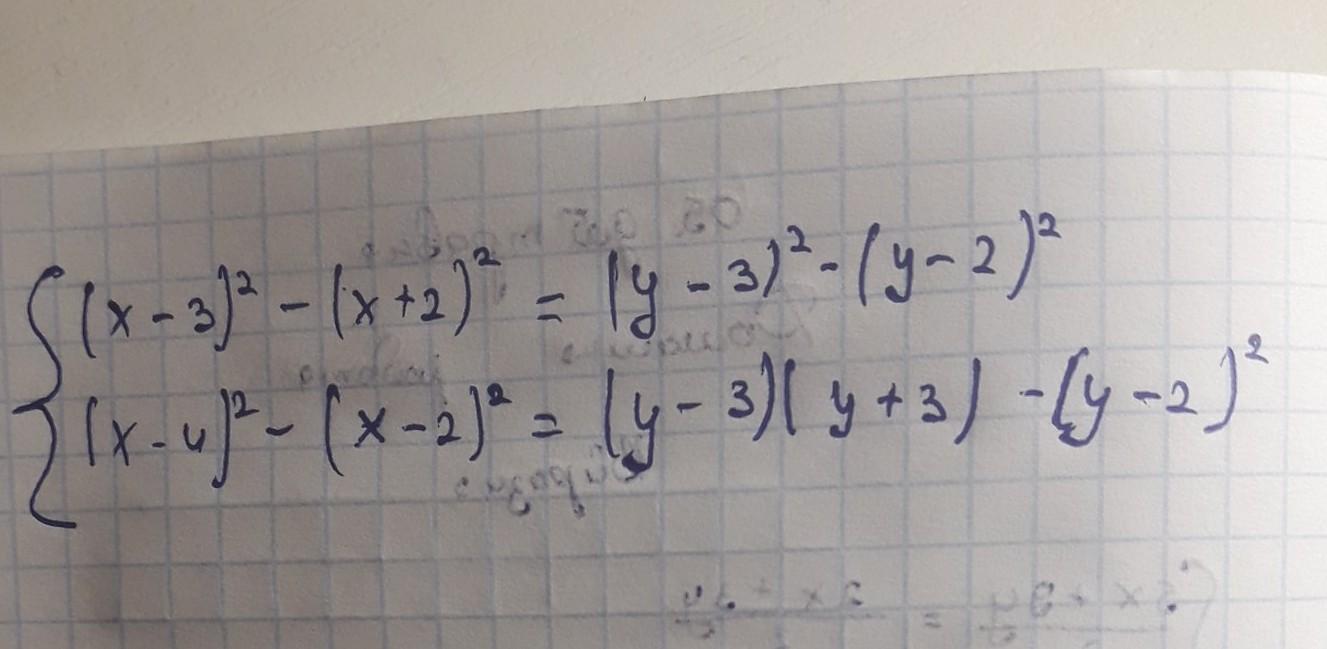 (x-3)² - (x+2)² = (y-3)² - (y-2)²
(x-4)² - (x-2)² = (y-3)(y+3) - (y-2)²